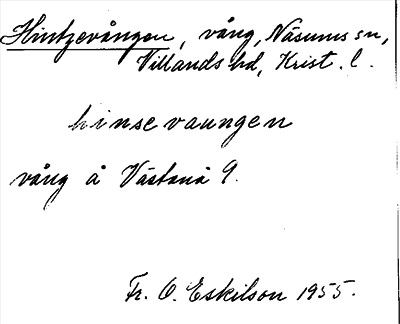 Hintzevången, vång, Näsums sn,
Villands hd, Krist. l.
hinsevaungen
vång å Västanå 9.
Fr. O. Eskilson 1955.